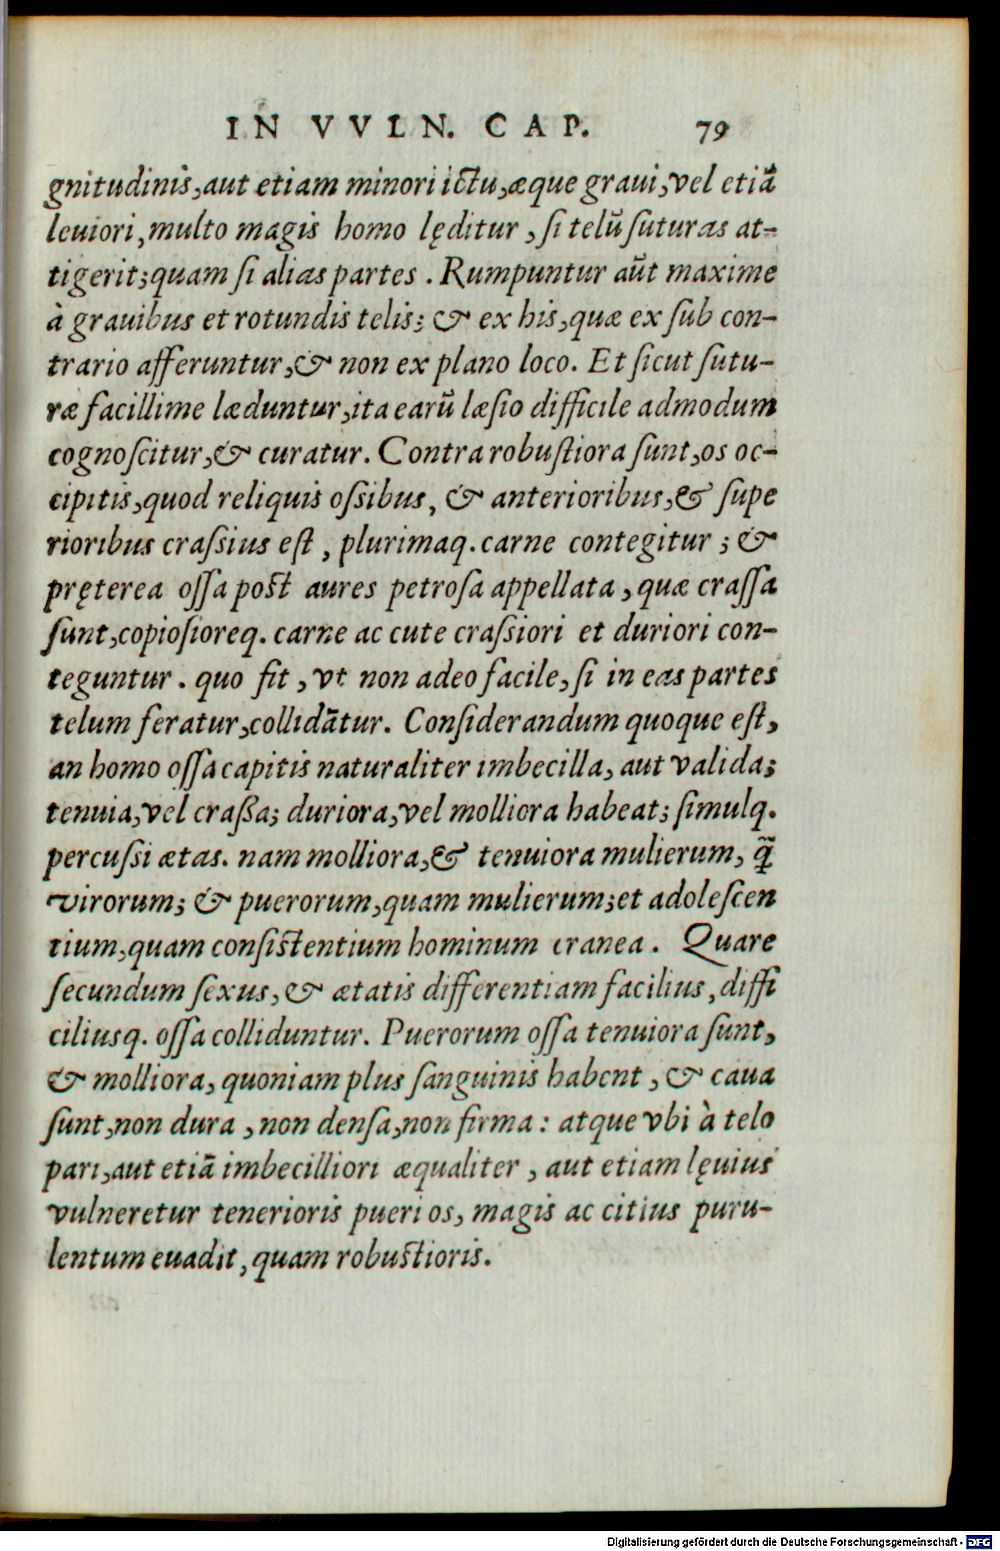 IN VVLN. CAP. 79
gnitudinis, aut etiam minori ictu, æque graui, vel etiā
leuiori, multo magis homo lęditur, ſi telū ſuturas at-
tigerit; quam ſi alias partes. Rumpuntur aūt maxime
à grauibus et rotundis telis; & ex his, quæ ex ſub con-
trario afferuntur, & non ex plano loco. Et ſicut ſutu-
ræ facillime læduntur, ita earū læſio difficile admodum
cognoſcitur, & curatur. Contra robuſtiora ſunt, os oc-
cipitis, quod reliquis oſsibus, & anterioribus, & ſupe
rioribus craſsius eſt, plurimaq. carne contegitur; &
pręterea oſſa post aures petroſa appellata, quæ craſſa
ſunt, copioſioreq. carne ac cute craſsiori et duriori con-
teguntur. quo fit, vt non adeo facile, ſi in eas partes
telum feratur, collidātur. Conſiderandum quoque eſt,
an homo oſſa capitis naturaliter imbecilla, aut valida;
tenuia, vel craßa; duriora, vel molliora habeat; ſimulq.
percuſsi ætas. nam molliora, & tenuiora mulierum, q̃
virorum; & puerorum, quam mulierum; et adoleſcen
tium, quam conſistentium hominum cranea. Quare
ſecundum ſexus, & ætatis differentiam facilius, diffi
ciliusq. oſſa colliduntur. Puerorum oſſa tenuiora ſunt,
& molliora, quoniam plus ſanguinis habent, & caua
ſunt, non dura, non denſa, non firma: atque vbi à telo
pari, aut etiā imbecilliori æqualiter, aut etiam lęuius
vulneretur tenerioris pueri os, magis ac citius puru-
lentum euadit, quam robustioris.
Digitalisierung gefördert durch die Deutsche Forschungsgemeinschaft - DFG